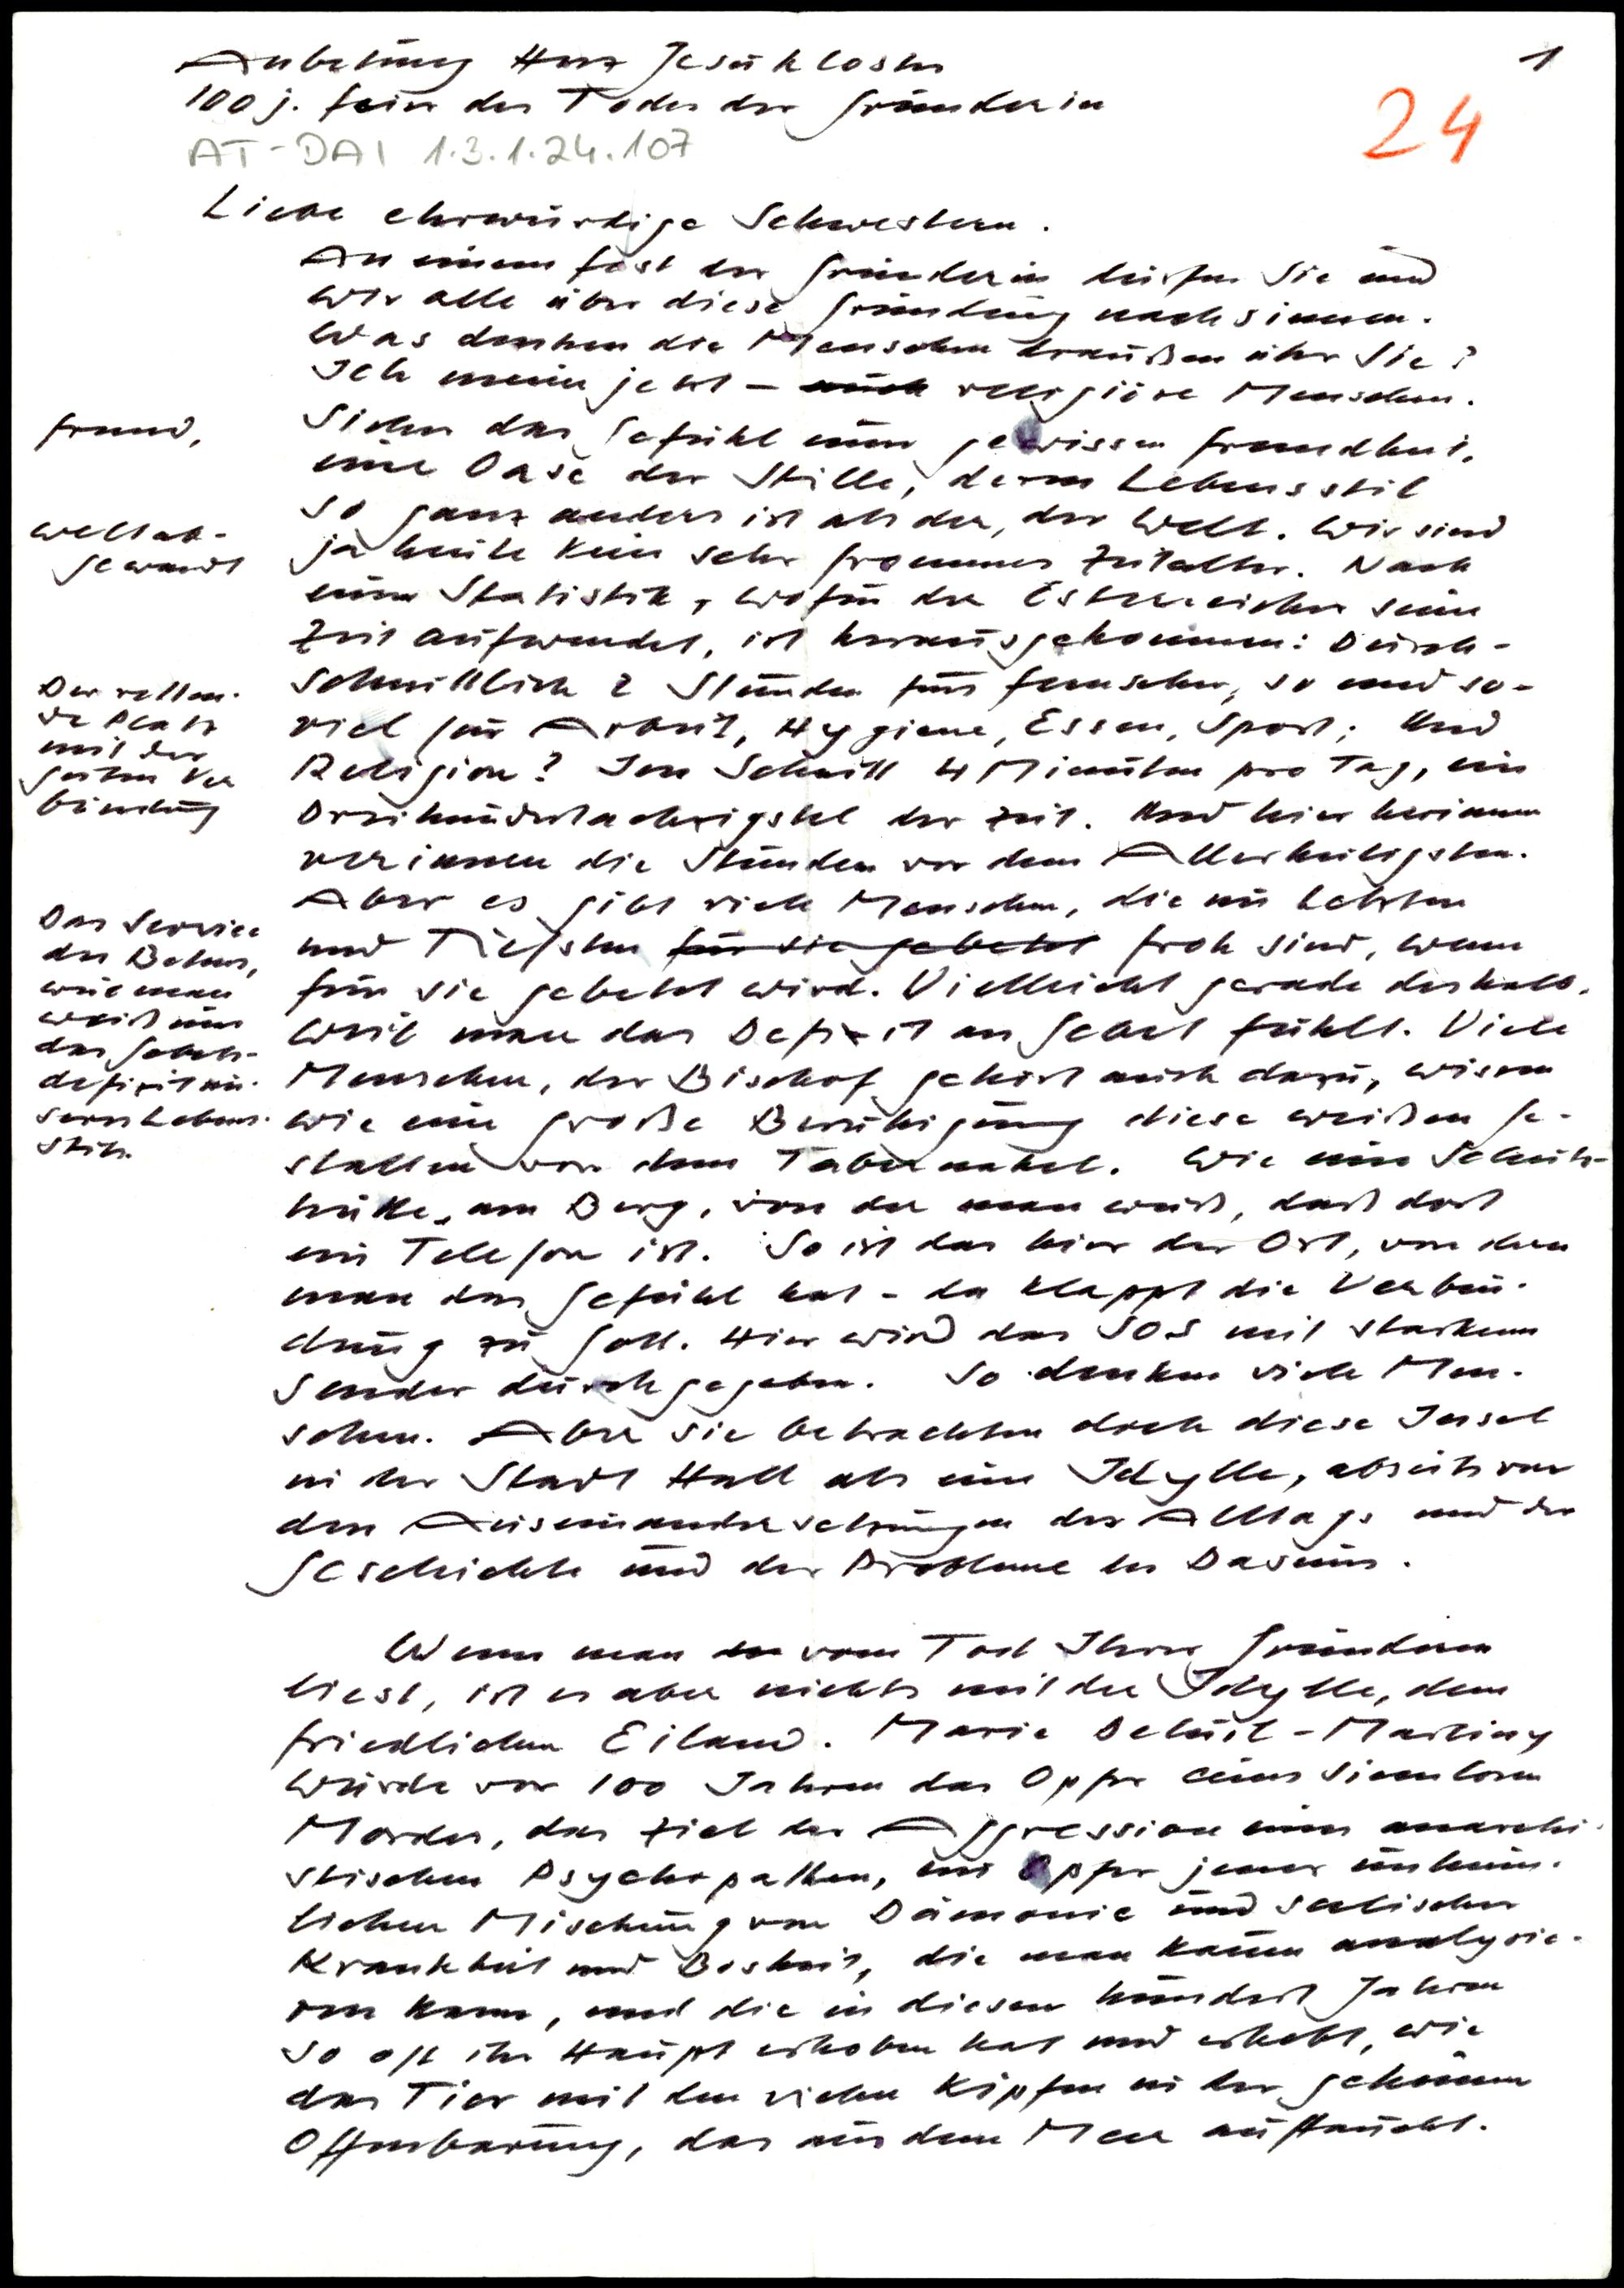 1
Anbetung Herz Jesukloster
100 j. Feier des Todes der Gründerin
24
AT-DAI 1.3.1.24.107
Liebe ehrwürdige Schwestern.
An einem Fest der Gründerin dürfen Sie und
wir alle über diese Gründung nachsinnen.
Was denken die Menschen draußen über Sie?
Ich meine jetzt – auch religiöse Menschen.
fremd,
Sicher das Gefühl einer gewissen Fremdheit,
eine Oase der Stille, deren Lebensstil
so ganz anders ist als der, der Welt. Wir sind
weltab-
gewandt
ja heute kein sehr frommes Zeitalter. Nach
einer Statistik, wofür der Österreicher seine
Zeit aufwendet, ist herausgekommen: Durch-
schnittlich 2 Stunden fürs Fernsehen, so und so-
viel für Arbeit, Hygiene, Essen, Sport; Und
Religion? Im Schnitt 4 Minuten pro Tag, ein
Dreihundertachzigstel der Zeit. Und hier herinnen
Der retten-
de Platz
mit der
guten Ver
bindung
verinnen die Stunden vor dem Allerheiligsten.
Aber es gibt viele Menschen, die im Letzten
und Tiefsten für sie gebetet froh sind, wenn
für sie gebetet wird. Vielleicht gerade deshalb,
weil man das Defizit an Gebet fühlt. Viele
Menschen, der Bischof gehört auch dazu, wissen
wie eine große Beruhigung diese weißen Ge-
Das Service
des Betens,
weil man
weiß um
das Gebets-
defizit un-
seres Lebens-
stils.
stalten vor dem Tabernakel. Wie eine Schutz-
hütte, am Berg, von der man weiß, daß dort
ein Telefon ist. So ist das hier der Ort, von dem
man das Gefühl hat – da klappt die Verbin-
dung zu Gott. Hier wird das SOS mit starkem
Sender durchgegeben. So denken viele Men-
schen. Aber sie betrachten doch diese Insel
in der Stadt Hall als eine Idylle, abseits von
den Auseinandersetzungen des Alltags und der
Geschichte und der Probleme des Daseins.
Wenn man vom Tod Ihrer Gründerin
liest, ist es aber nichts mit der Idylle, dem
friedlichen Eiland. Marie Deluil-Martiny
wurde vor 100 Jahren das Opfer eines sinnlosen
Mordes, das Ziel der Aggression eines anarchi-
stischen Psychopathen, ein Opfer jener unheim-
lichen Mischung von Dämonie und seelischer
Krankheit und Bosheit, die man kaum analysie-
ren kann, und die in diesen hundert Jahren
so oft ihr Haupt erhoben hat und erhebt, wie
das Tier mit den vielen Köpfen in der geheimen
Offenbarung, das aus dem Meer auftaucht.